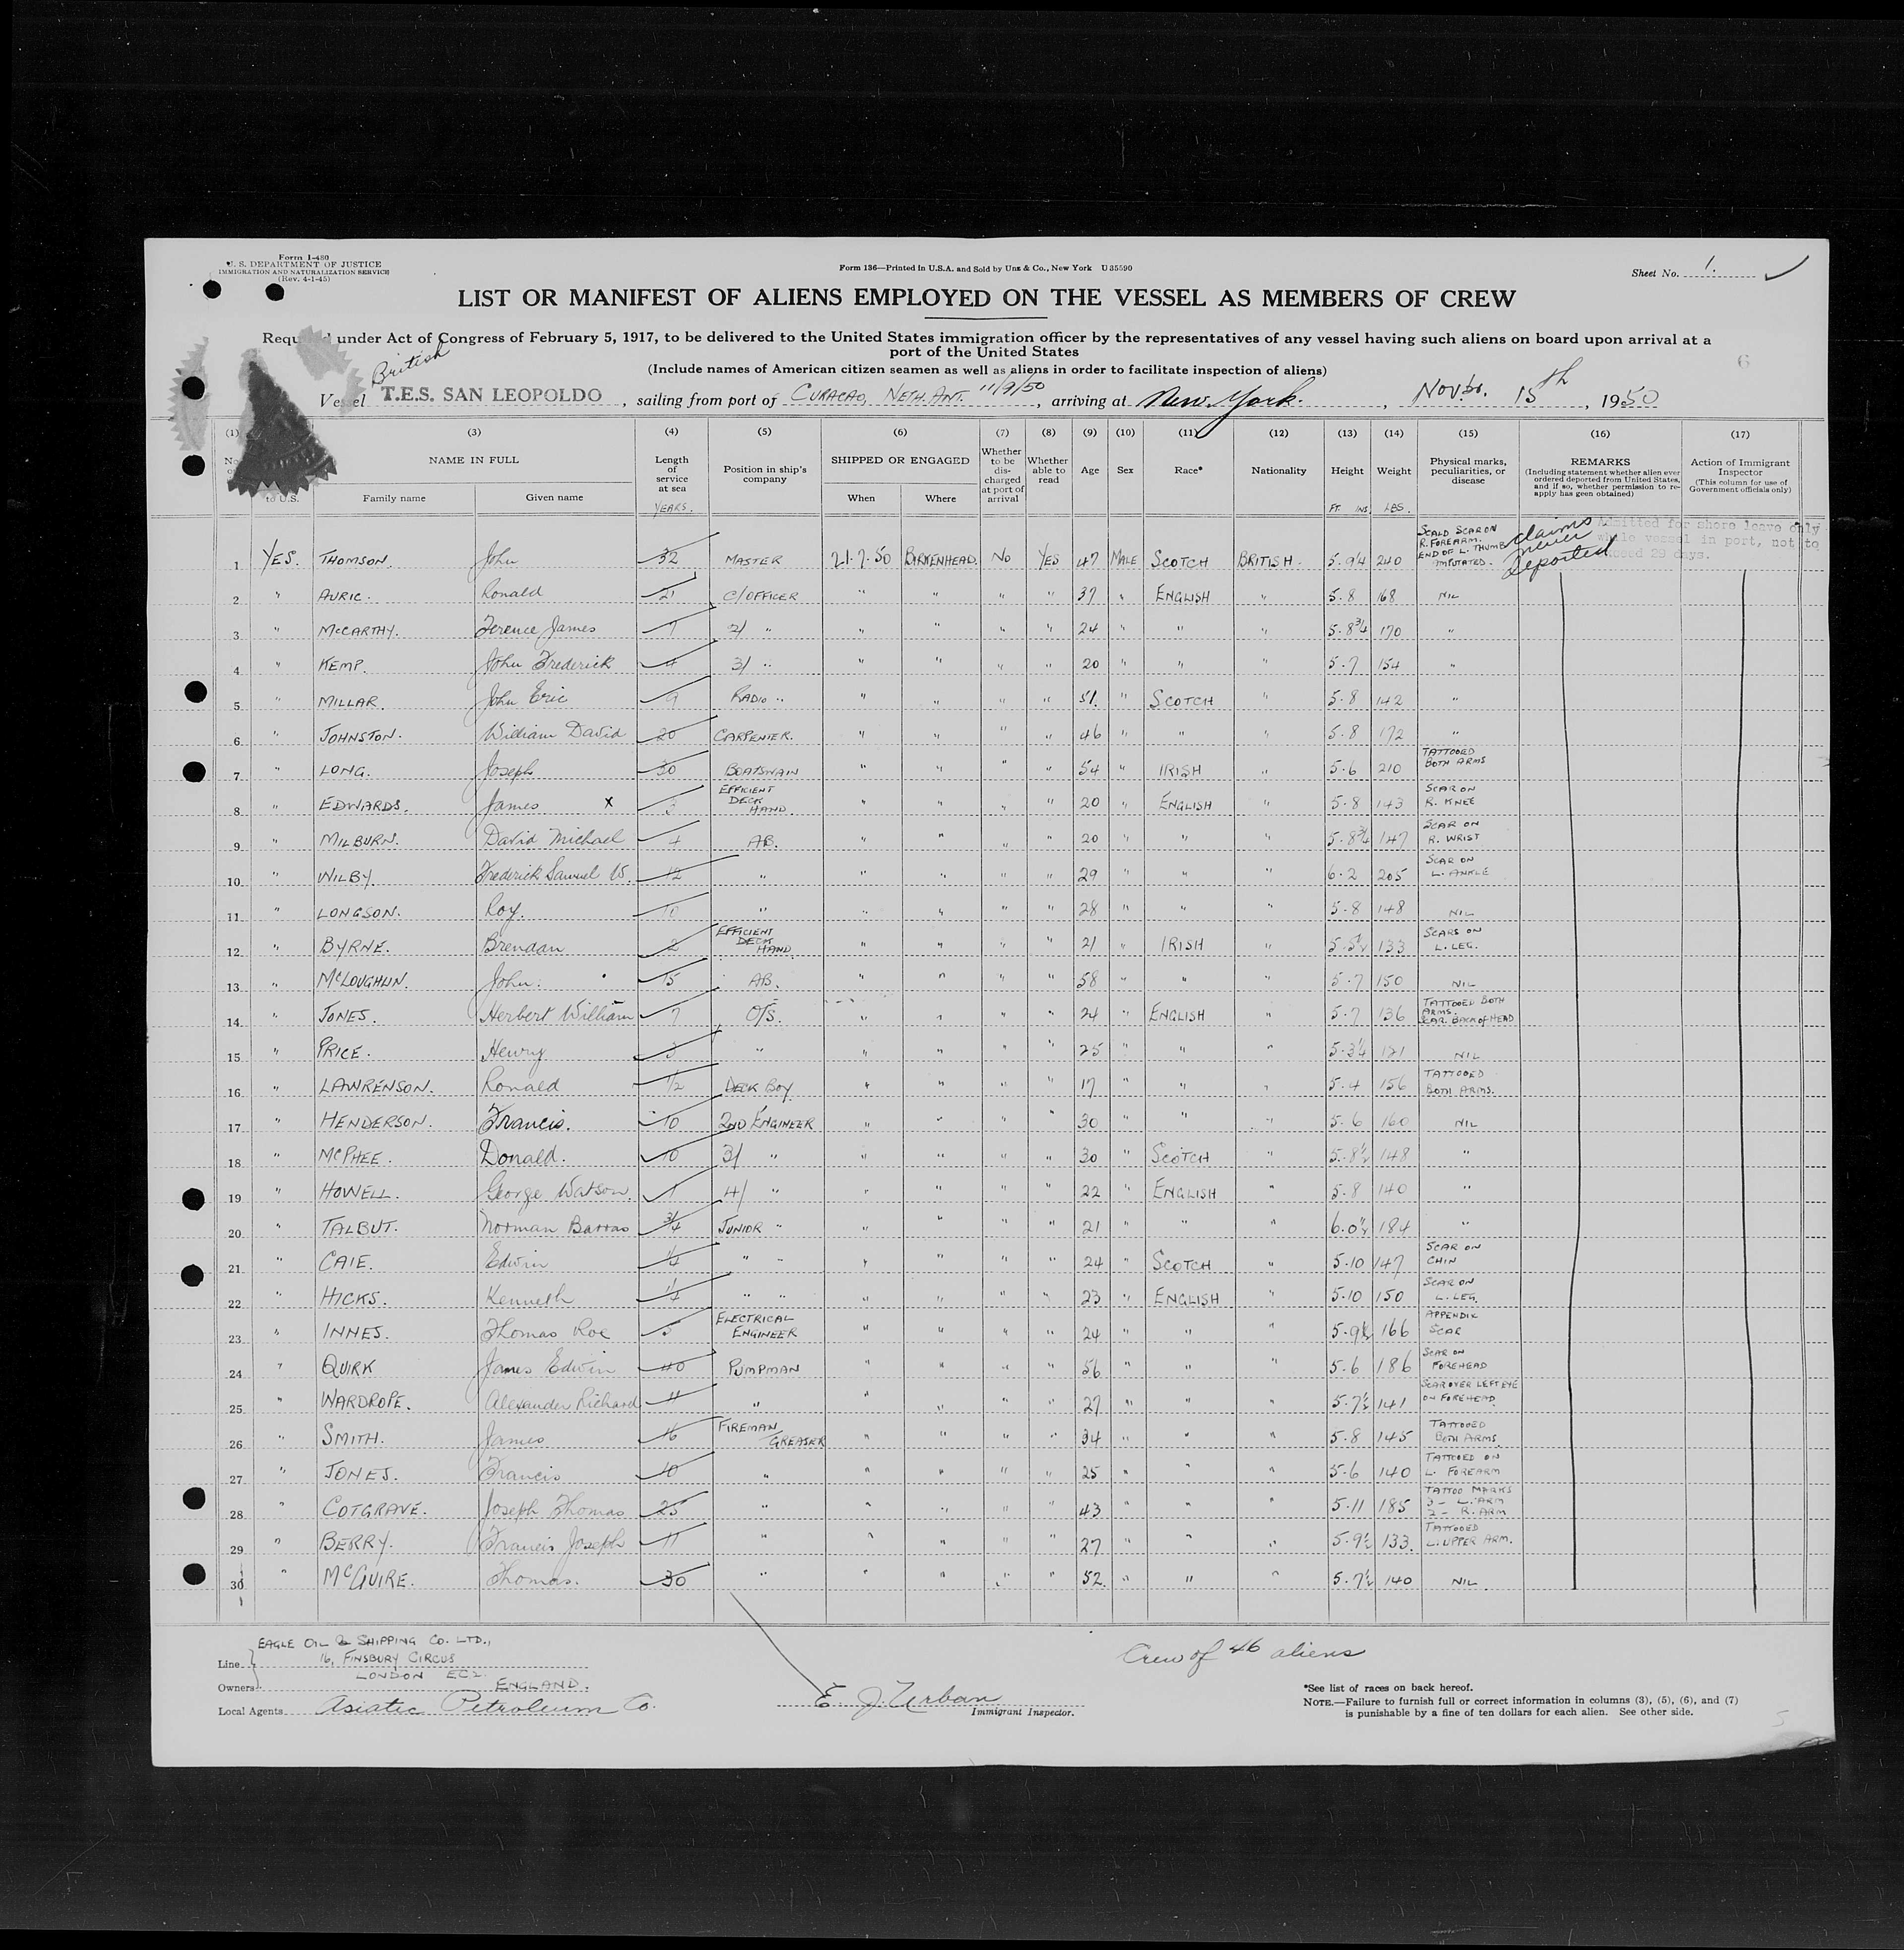 Form I-480
U. S. DEPARTMENT OF JUSTICE
IMMIGRATION AND NATURALIZATION SERVICE
(Rev. 4-1-45)
Form 136—Printed in U.S.A. and Sold by Unz & Co., New York U 35590
Sheet No. 1.
LIST OR MANIFEST OF ALIENS EMPLOYED ON THE VESSEL AS MEMBERS OF CREW
under Act of Congress of February 5, 1917, to be delivered to the United States immigration officer by the representatives of any vessel having such aliens on board upon arrival at a
port of the United States
(Include names of American citizen seamen as well as aliens in order to facilitate inspection of aliens)
6
British
Vessel T.E.S. SAN LEOPOLDO, sailing from port of CURACAO, NETH. ANT. 11/9/50, arriving at New York., Novbr. 15th, 1950
(1) (3) (4) (5) (6) (7) (8) (9) (10) (11) (12) (13) (14) (15) (16) (17)
to U.S.
NAME IN FULL Family name Given name
Length of service at sea YEARS.
Position in ship's company
SHIPPED OR ENGAGED When Where
Whether to be discharged at port of arrival
Whether able to read
Age Sex Race* Nationality
Height FT. INS.
Weight LBS.
Physical marks, peculiarities, or disease
REMARKS (Including statement whether alien ever ordered deported from United States, and if so, whether permission to reapply has geen obtained)
Action of Immigrant Inspector (This column for use of Government officials only)
Admitted for shore leave only
while vessel in port, not to
exceed 29 days.
claims never deported
1 YES. THOMSON. John 32 MASTER 21.7.50 BIRKENHEAD. No YES 47 MALE SCOTCH BRITISH. 5.9¼ 240 SCALD SCAR ON R. FOREARM. END OF L. THUMB AMPUTATED.
2 " AURIC. Ronald 21 C/OFFICER " " " " 37 " ENGLISH " 5.8 168 NIL
3 " McCARTHY. Terence James 7 2/ " " " " " 24 " " " 5.8¾ 170 "
4 " KEMP. John Frederick 4 3/ " " " " " 20 " " " 5.7 154 "
5 " MILLAR. John Eric 9 RADIO " " " " " 51. " SCOTCH " 5.8 142 "
6 " JOHNSTON. William David 20 CARPENTER. " " " " 46 " " " 5.8 172 "
7 " LONG. Joseph 30 BOATSWAIN " " " " 54 " IRISH " 5.6 210 TATTOOED BOTH ARMS
8 " EDWARDS. James X 3 EFFICIENT DECK HAND. " " " " 20 " ENGLISH " 5.8 143 SCAR ON R. KNEE
9 " MILBURN. David Michael 4 AB. " " " " 20 " " " 5.8¾ 147 SCAR ON R. WRIST
10 " WILBY. Frederick Samuel W. 12 " " " " " 29 " " " 6.2 205 SCAR ON L. ANKLE
11 " LONGSON. Roy. 10 " " " " " 28 " " " 5.8 148 NIL
12 " BYRNE. Brendan 2 EFFICIENT DECK HAND. " " " " 21 " IRISH " 5.5½ 133 SCARS ON L. LEG.
13 " McLOUGHLIN. John. 15 AB. " " " " 58 " " " 5.7 150 NIL
14 " JONES. Herbert William 7 O/S. " " " " 24 " ENGLISH " 5.7 136 TATTOOED BOTH ARMS. SCAR. BACK of HEAD
15 " PRICE. Henry 3 " " " " " 25 " " " 5.3¼ 121 NIL
16 " LAWRENSON. Ronald 1/2 DECK BOY " " " " 17 " " " 5.4 156 TATTOOED BOTH ARMS.
17 " HENDERSON. Francis. 10 2ND ENGINEER " " " " 30 " " 5.6 160 NIL
18 " McPHEE. Donald. 10 3/ " " " " " 30 " SCOTCH " 5.8½ 148 "
19 " HOWELL. George Watson. 1 4/ " " " " " 22 " ENGLISH " 5.8 140 "
20 " TALBUT. Norman Barras 3/4 JUNIOR " " " " " 21 " " " 6.0½ 184 "
21 " CAIE. Edwin 1/4 " " " " " " 24 " SCOTCH " 5.10 147 SCAR ON CHIN
22 " HICKS. Kenneth 1/4 " " " " " " 23 " ENGLISH " 5.10 150 SCAR ON L. LEG.
23 " INNES. Thomas Roe 5 ELECTRICAL ENGINEER " " " " 24 " " " 5.9½ 166 APPENDIX SCAR
24 " QUIRK James Edwin 40 PUMPMAN " " " " 56 " " " 5.6 186 SCAR ON FOREHEAD
25 " WARDROPE. Alexander Richard 11 " " " " " 27 " " " 5.7½ 141 SCAR OVER LEFT EYE ON FOREHEAD.
26 " SMITH. James 16 FIREMAN GREASER " " " " 34 " " " 5.8 145 TATTOOED BOTH ARMS.
27 " JONES. Francis 10 " " " " " 25 " " " 5.6 140 TATTOOED ON L. FOREARM
28 " COTGRAVE. Joseph Thomas 25 " " " " " 43 " " " 5.11 185 TATTOO MARKS 3 - L. ARM 2 - R. ARM
29 " BERRY. Francis Joseph 11 " " " " " 27 " " " 5.9½ 133. TATTOOED L. UPPER ARM.
30 " McGUIRE. Thomas. 30 " " " " " 52. " " " 5.7½ 140 NIL.
Line EAGLE OIL & SHIPPING CO. LTD.,
16, FINSBURY CIRCUS
LONDON EC2.
Owners ENGLAND.
Local Agents Asiatic Petroleum Co.
E. J. Urban
Immigrant Inspector.
Crew of 46 aliens
*See list of races on back hereof.
NOTE.—Failure to furnish full or correct information in columns (3), (5), (6), and (7)
is punishable by a fine of ten dollars for each alien. See other side.
5